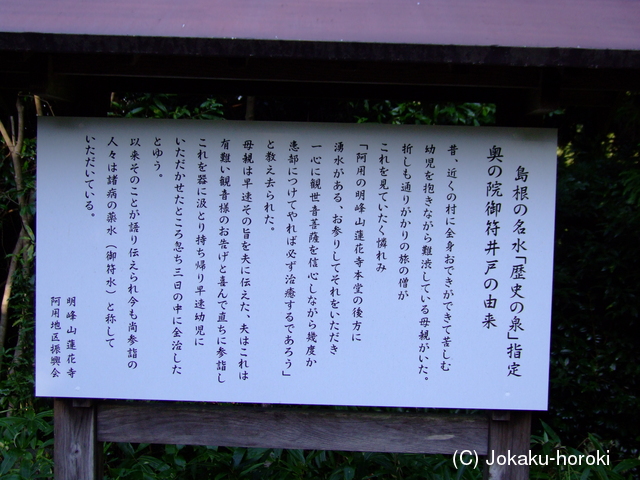 島根の名水「歴史の泉」指定
奥の院御符井戸の由来
昔、近くの村に全身おできができて苦しむ
幼児を抱きながら難渋している母親がいた。
折しも通りがかりの旅の僧が
これを見ていたく憐れみ
「阿用の明峰山蓮花寺本堂の後方に
湧水がある、お参りしてそれをいただき
一心に観世音菩薩を信心しながら幾度か
患部につけてやれば必ず治癒するであろう」
と教え去られた。
母親は早速その旨を夫に伝えた、夫はこれは
有難い観音様のお告げと喜んで直ちに参詣し
これを器に汲とり持ち帰り早速幼児に
いただかせたところ忽ち三日の中に全治した
とゆう。
以来そのことが語り伝えられ今も尚参詣の
人々は諸病の薬水（御符水）と称して
いただいている。
明峰山蓮花寺
阿用地区振興会
(C) Jokaku-horoki